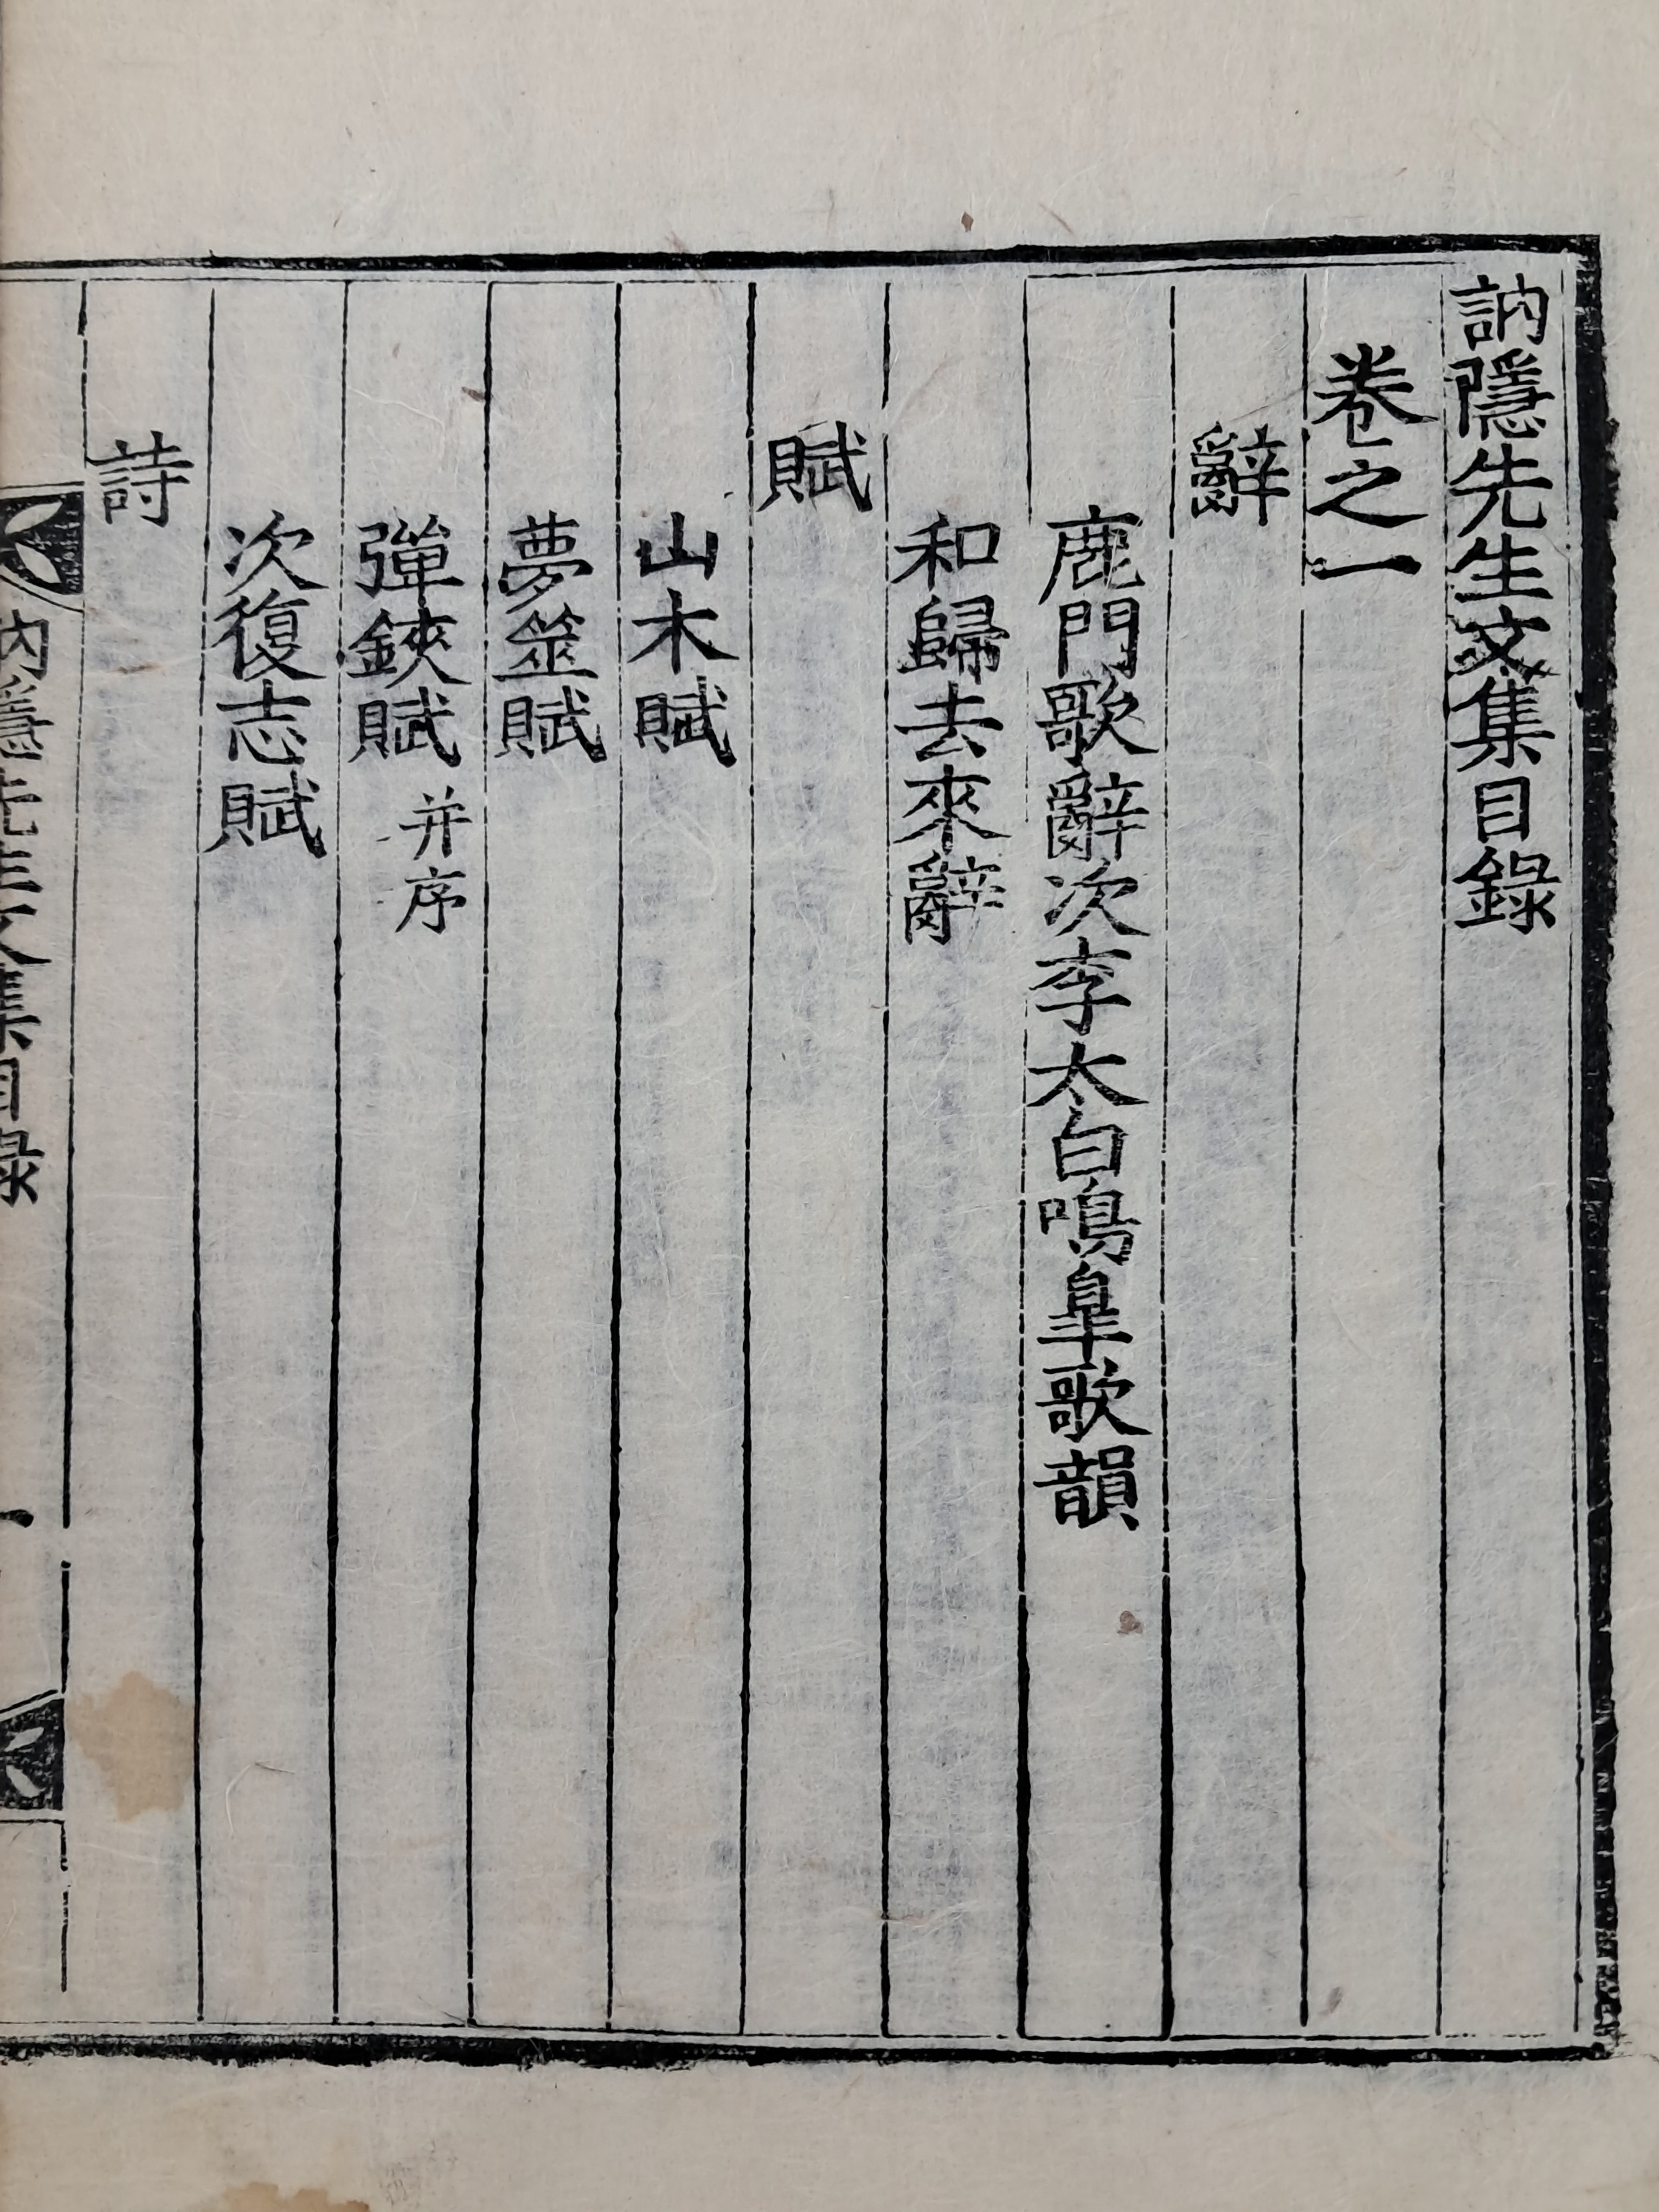 訥隱先生文集目錄
卷之一
辭
鹿門歌辭次李太白鳴臯歌韻
和歸去來辭
賦
山木賦
夢筮賦
彈鋏賦 并序
次復志賦
詩
訥隱先生文集目錄